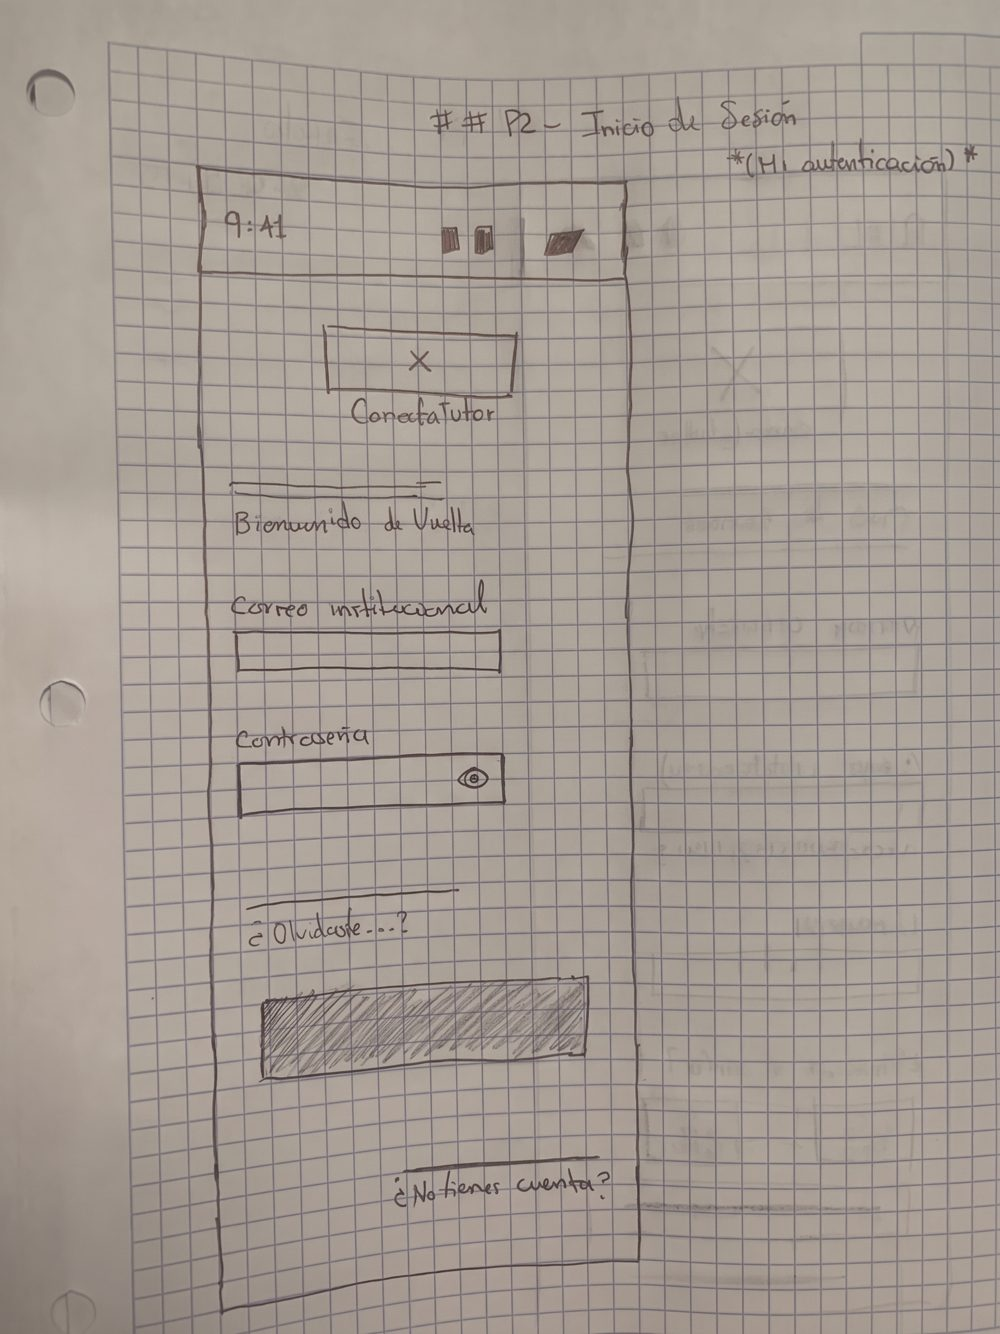 ## P2 - Inicio de Sesión
*(Mi autenticación)*
9:41
ConectaTutor
Bienvenido de Vuelta
Correo institucional
Contraseña
¿Olvidaste....?
¿No tienes cuenta?